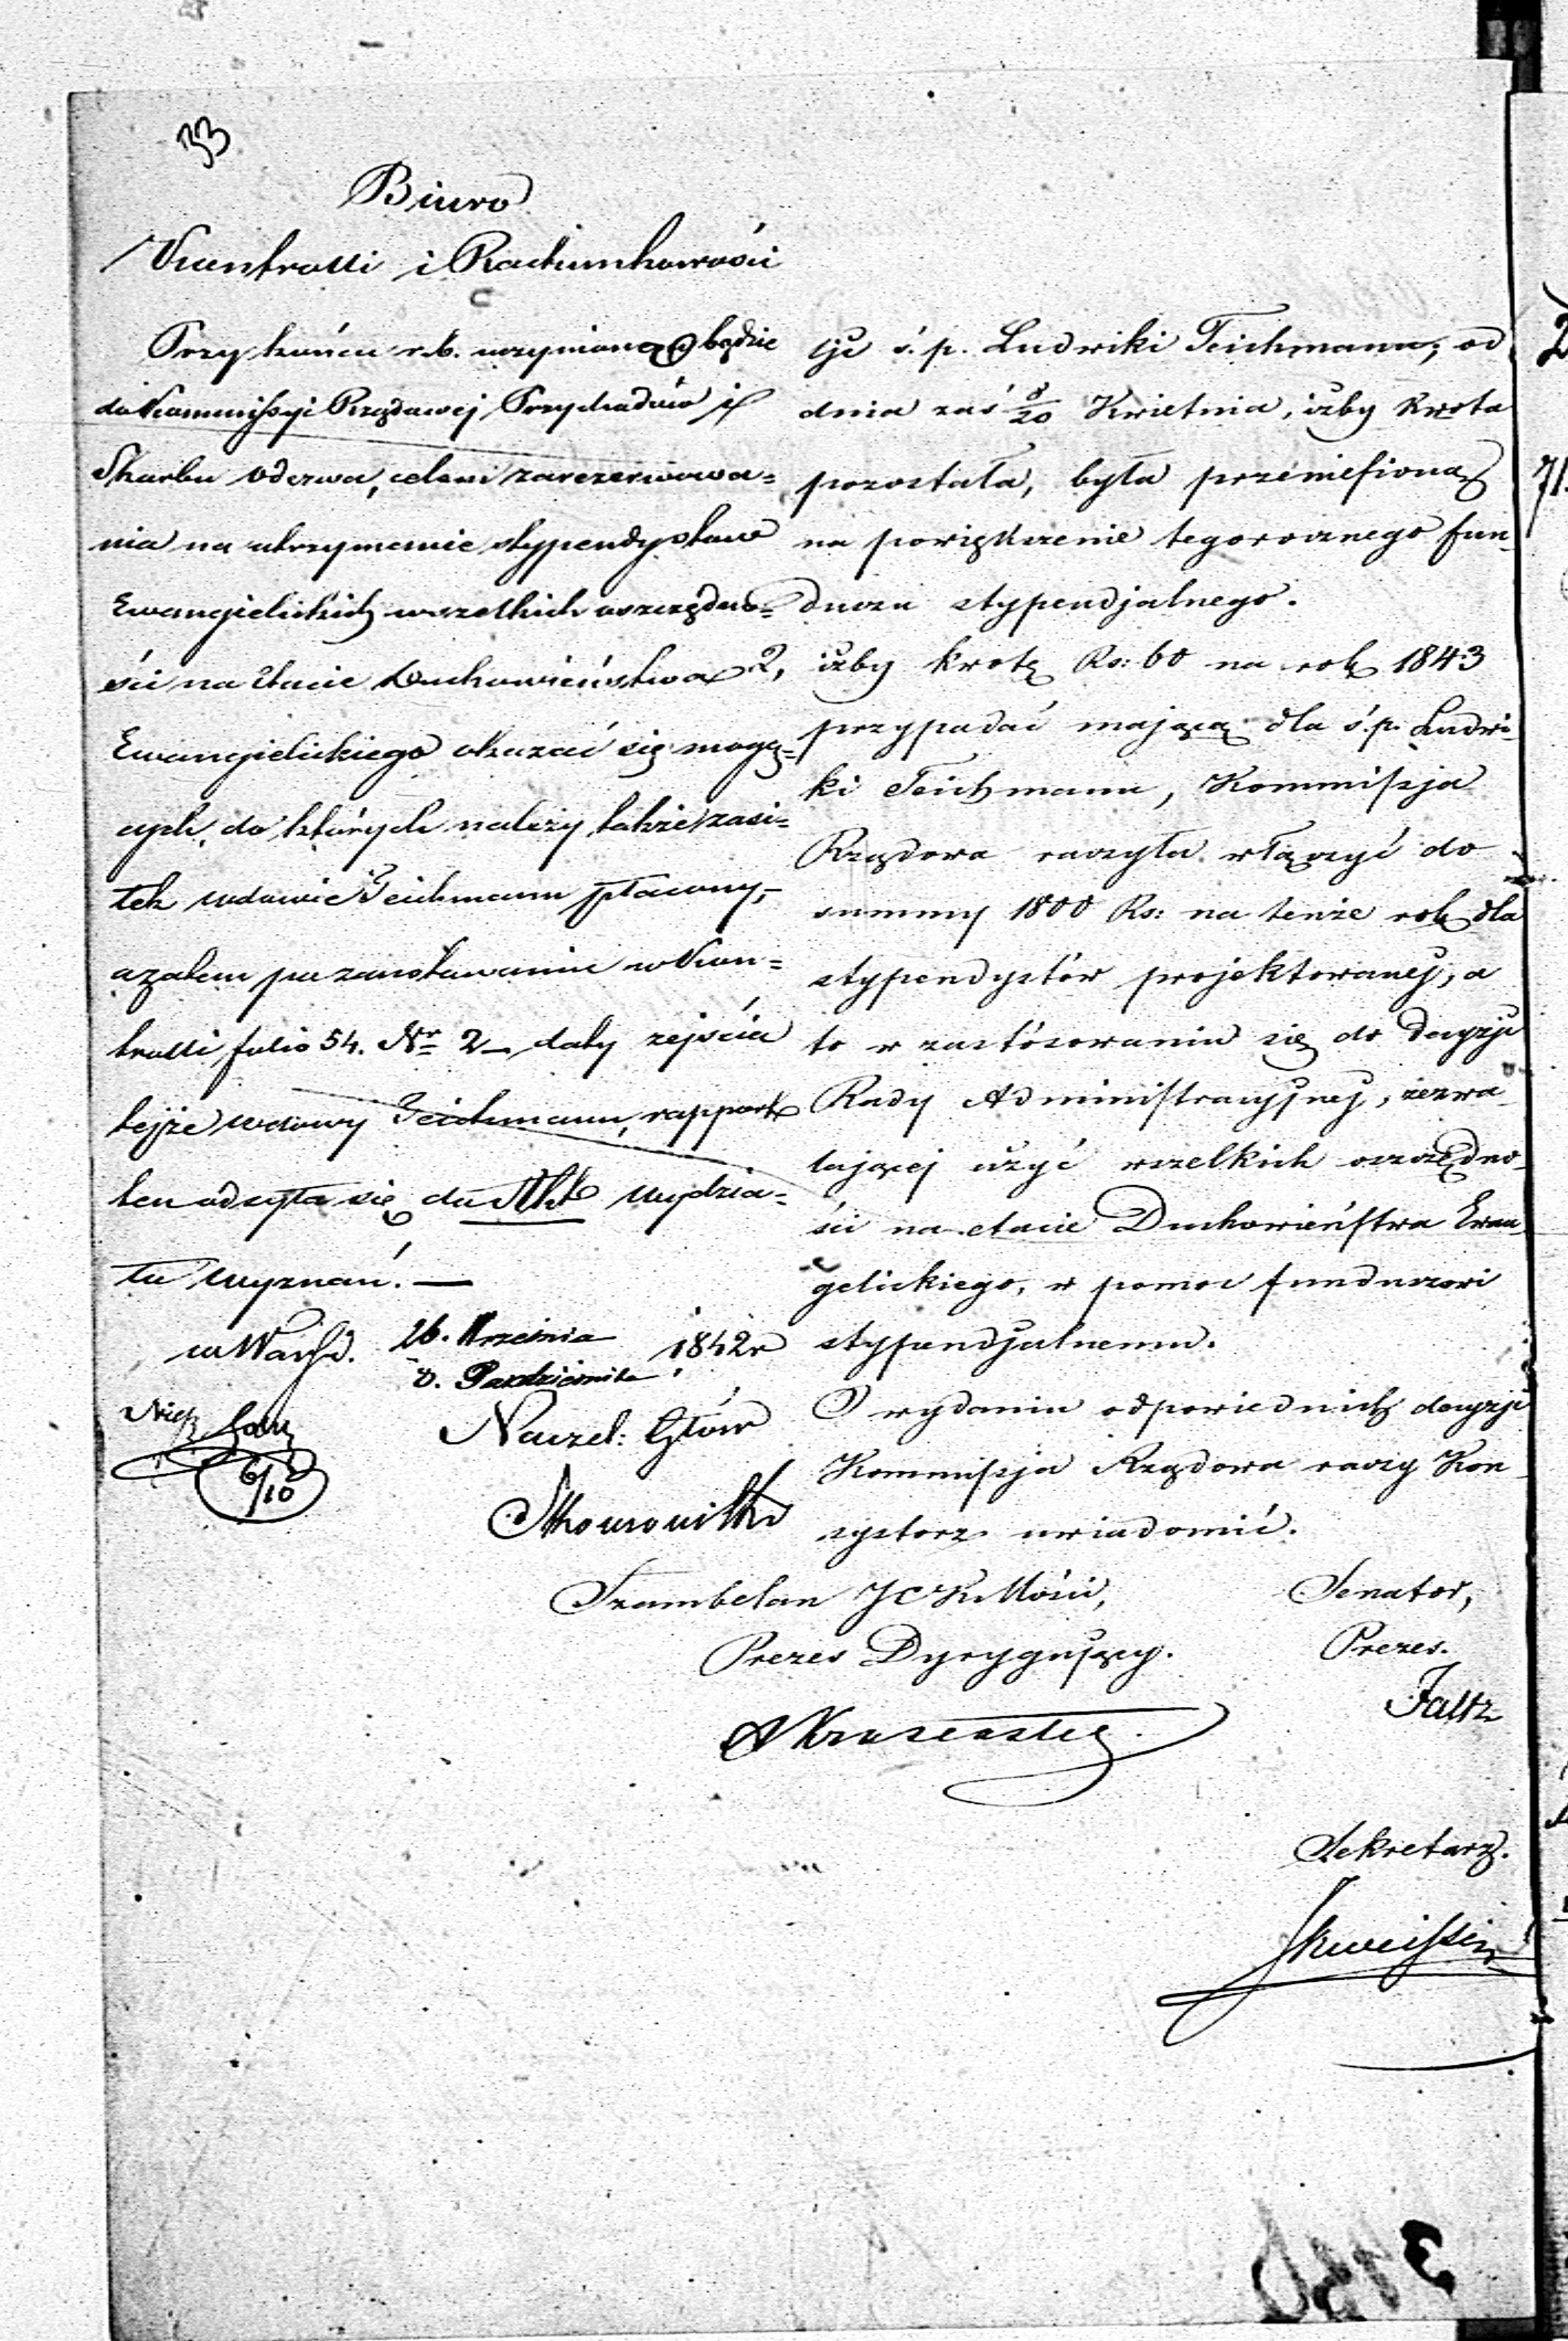 33
Biuro
Kontrolli i Rachunkowości
Przy końcu r.b. uczyniona będzie
do Kommissyi Rządowej Przychodów i
Skarbu odezwa, celem zarezerwowa=
nia na utrzymanie stypendystów
Ewangielickich wszelkich oszczędno=
ści na Etacie Duchowieństwa
Ewangielickiego okazać się mogą=
cych, do których należy także zasi=
łek wdowie Teichmann płacony,
a zatem po zanotowaniu w Kon=
trolli folio 54. Nr 2 daty zejścia
tejże wdowy Teichmann, rapport
ten odsyła się do Wydzia=
łu Wyznań. —
w Warsz. 26. Września
8. Października 1842 r
Naczel: Głów
6/10
tje ś. p. Ludwiki Teichmann, od
dnia zaś 8/20 Kwietnia, iżby kwota
pozostała, była przeniesioną
na powiększenie tegorocznego fun-
duszu stypendjalnego.
iżby kwotę Rs: 60 na rok 1843
przypadać mającą dla ś. p. Ludwi-
ki Teichmann, Kommissja
Rządowa raczyła włączyć do
summy 1800 Rs: na tenże rok dla
stypendystów projektowanej, a
to w zastósowaniu się do Decyzji
Rady Administracyjnej, zezwa-
lającej użyć wszelkich oszczędno-
ści na etacie Duchowieństwa Ewan-
gelickiego, w pomoc funduszowi
stypendjalnemu.
O wydaniu odpowiednich decyzji
Kommissja Rządowa raczy Kon-
systorz uwiadomić.
Szambelan JCK Mości,
Prezes Dyrygujący.
Senator,
Prezes.
Sekretarz.